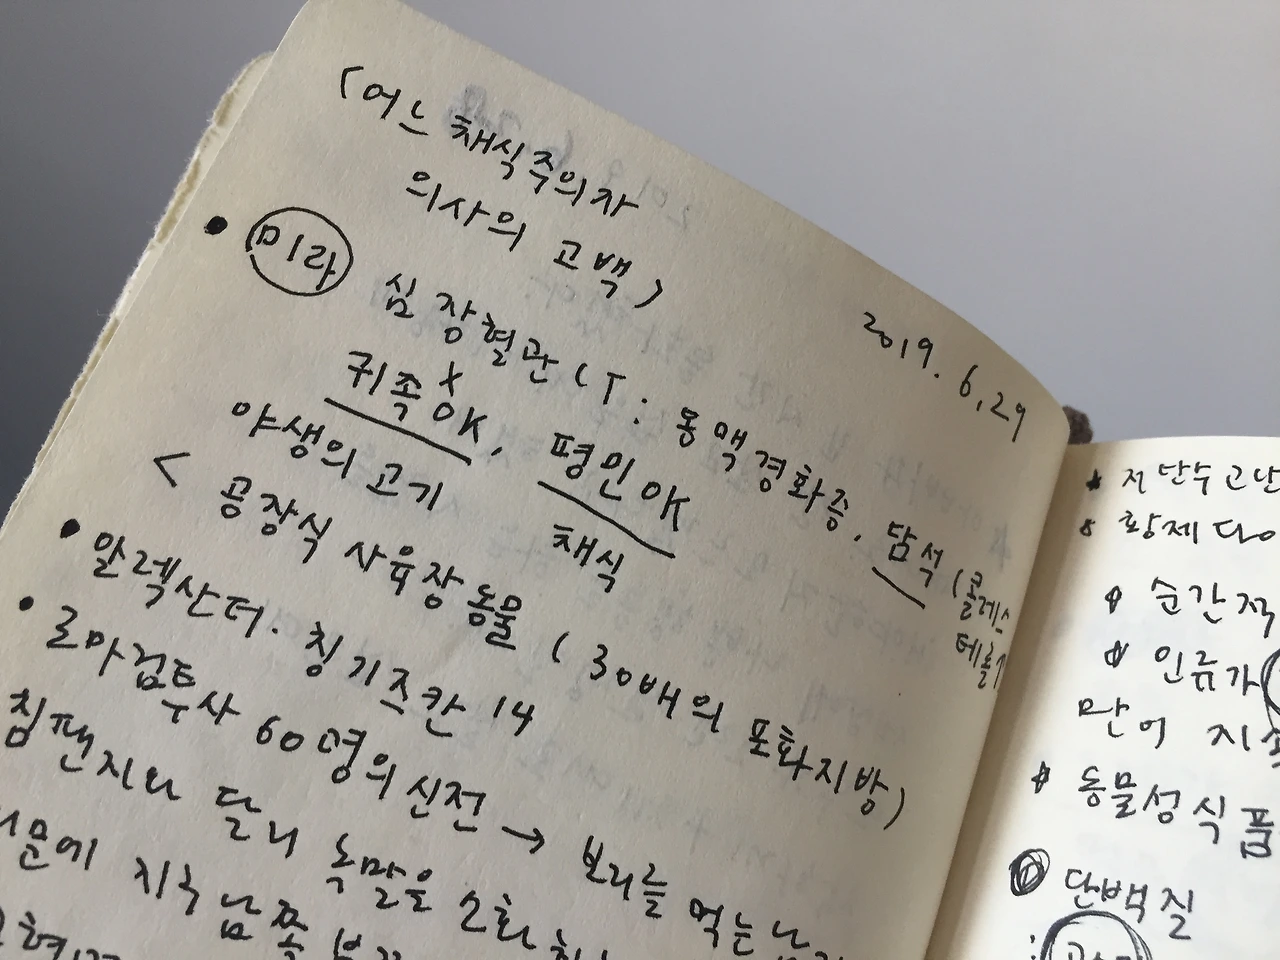 (어느 채식주의자
의사의 고백)
2019. 6, 29
• 미라 심장혈관 CT : 동맥경화증, 담석 (콜레스
테롤
귀족 X OK, 평민 OK
야생의 고기 채식
< 공장식 사육장 동물 (30배의 포화지방)
• 알렉산더. 칭기즈칸 14
• 로마검투사 60명의 신전 → 보리를 먹는
침팬지와 달리 녹말을 소화
지구
저탄수고단
황제다이
순간적
인류가
만이 지속
동물성 식품
단백질